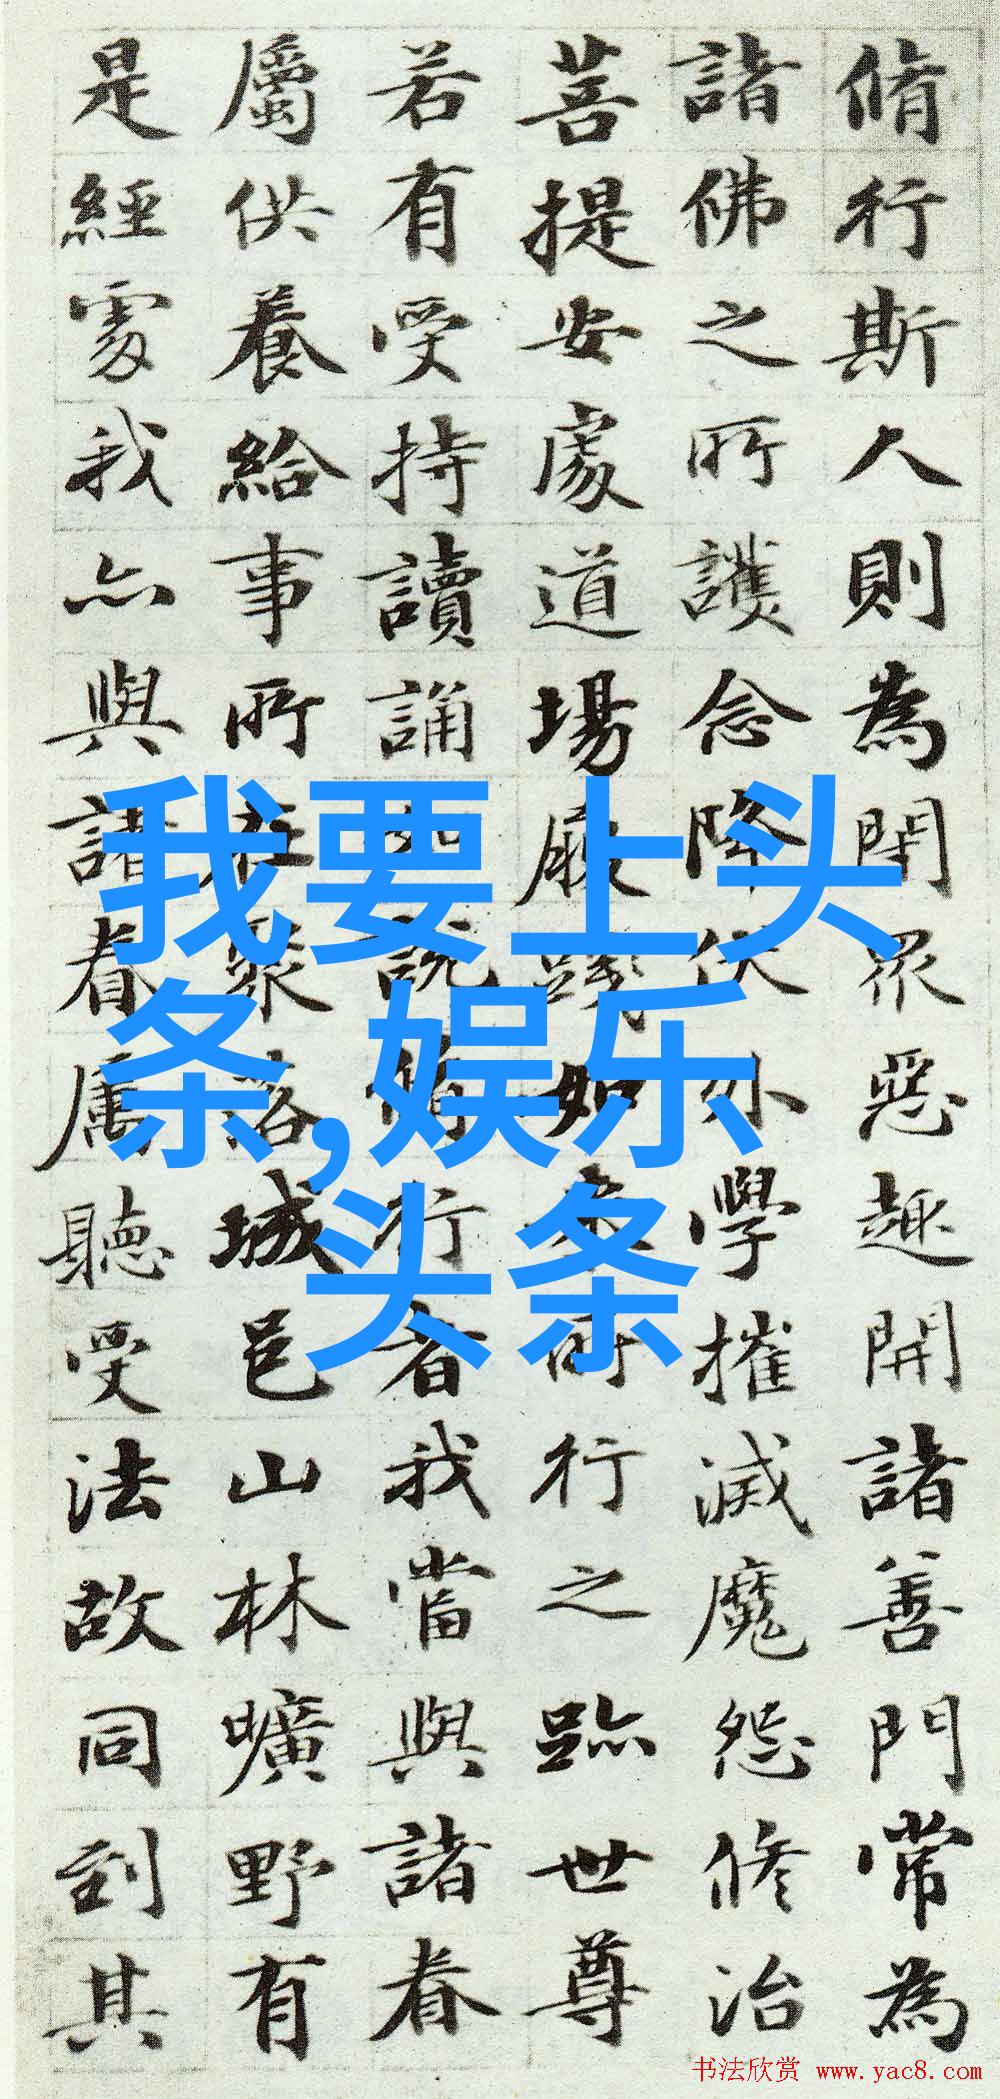 脩行斯人則為閇眾惡趣開諸善門常為
諸佛之所護念降伏外學摧滅魔怨修治
菩提安處道場履踐如來所行之跡世尊
若有受持讀誦如說脩行者我當與諸眷
屬供養給事所在聚落城邑山林曠野有
是經處我亦與諸眷屬聽受法故同到其
我要上头
条,娱乐
头条
书法欣赏 www.yac8.com